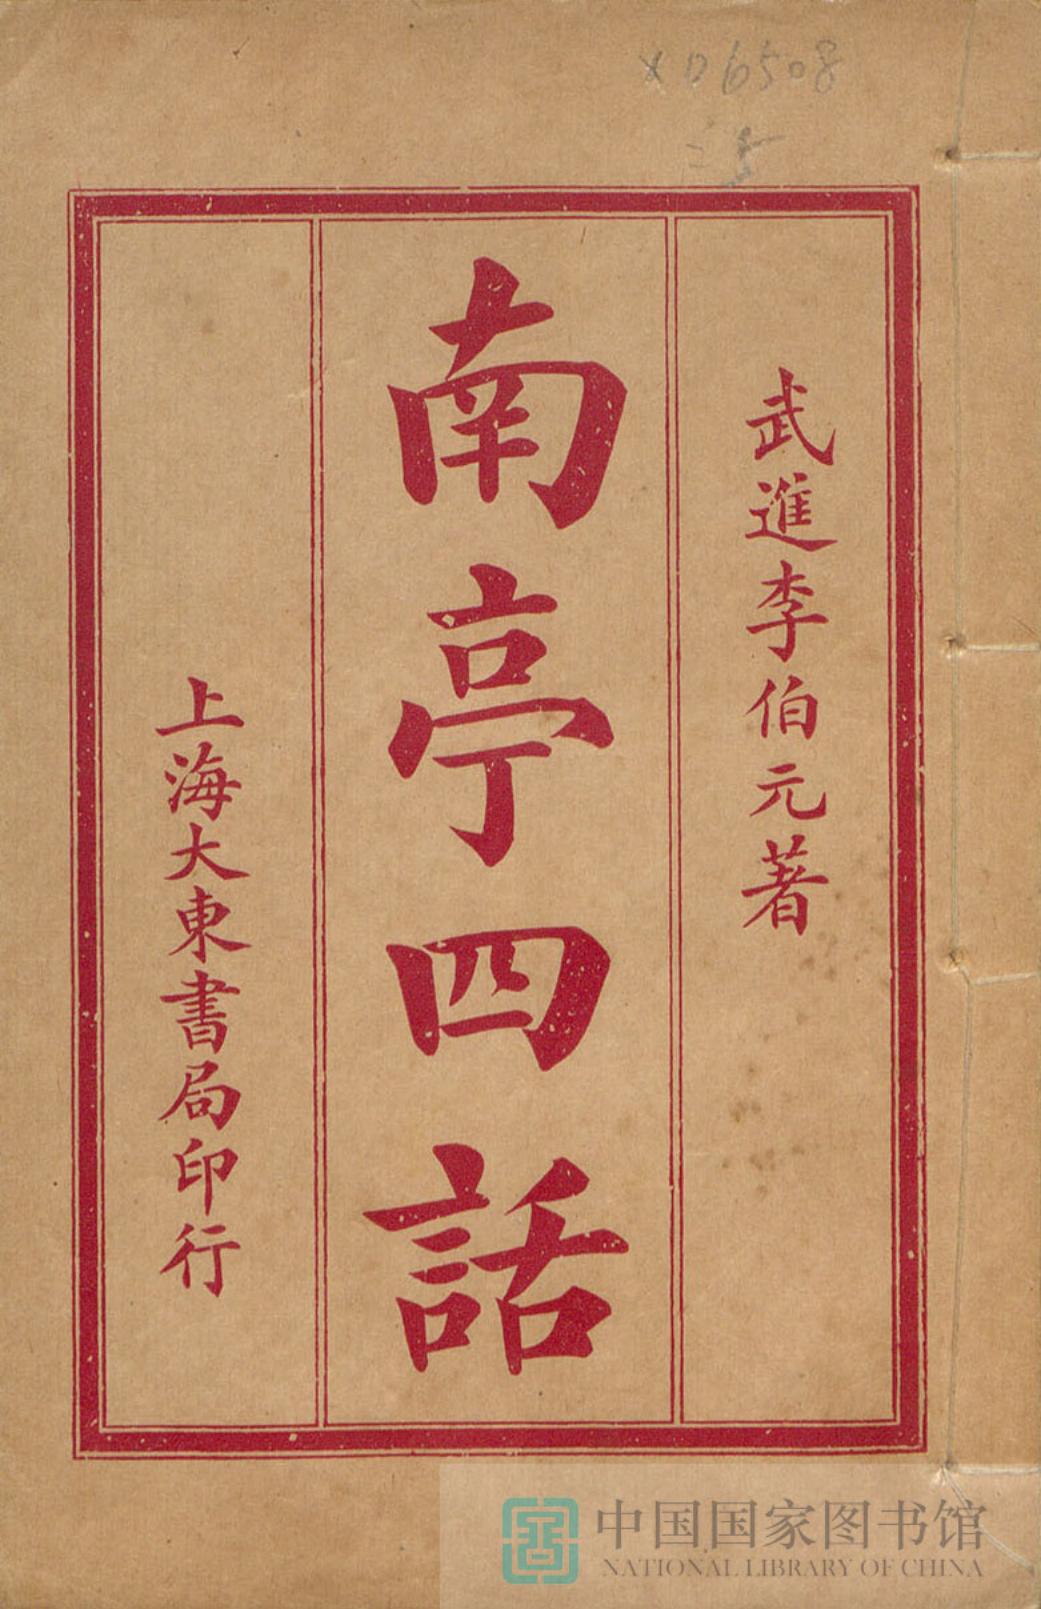 XD6508
=5
武進李伯元著
南亭四話
上海大東書局印行
中国国家图书馆
NATIONAL LIBRARY OF CHINA